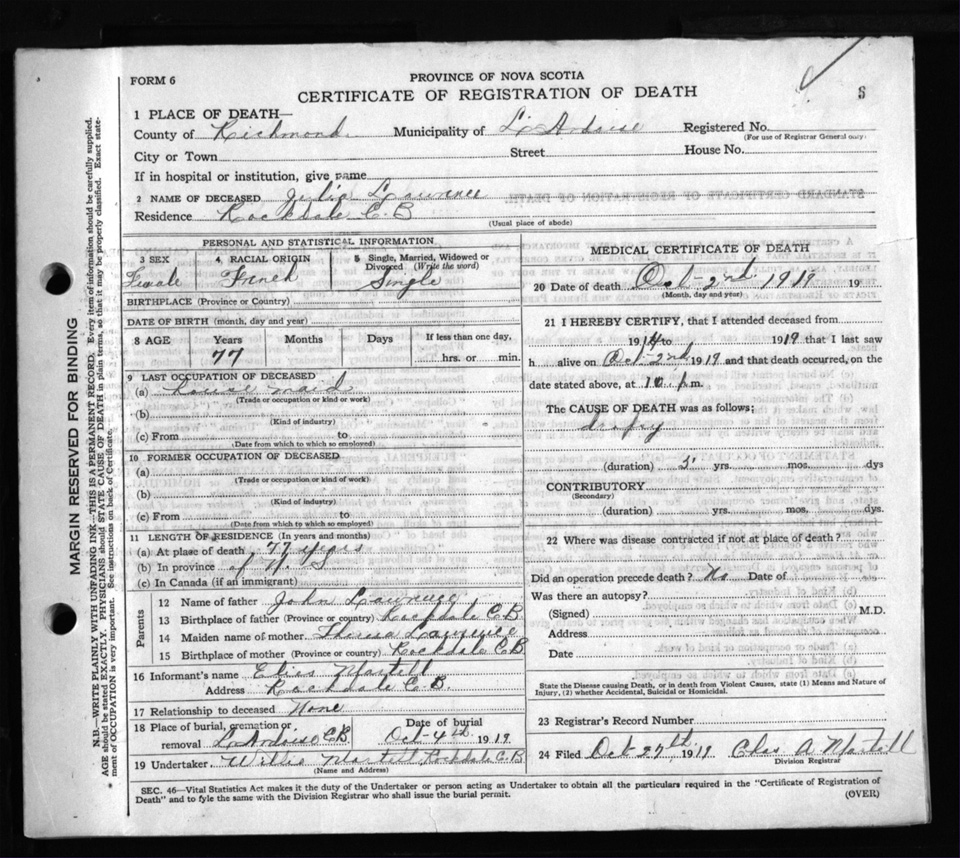 FORM 6
PROVINCE OF NOVA SCOTIA
CERTIFICATE OF REGISTRATION OF DEATH
S
1 PLACE OF DEATH—
County of Richmond Municipality of L'Ardoise Registered No.
(For use of Registrar General only)
City or Town Street House No.
If in hospital or institution, give name
2 NAME OF DECEASED Julia Lawrence
Residence Rockdale C.B
(Usual place of abode)
PERSONAL AND STATISTICAL INFORMATION
3 SEX 4 RACIAL ORIGIN 5 Single, Married, Widowed or Divorced (Write the word)
Female French Single
BIRTHPLACE (Province or Country)
DATE OF BIRTH (month, day and year)
8 AGE Years Months Days If less than one day,
77 hrs. or min.
9 LAST OCCUPATION OF DECEASED
(a) House maid
(Trade or occupation or kind or work)
(b)
(Kind of industry)
(c) From to
(Date from which to which so employed)
10 FORMER OCCUPATION OF DECEASED
(a)
(Trade or occupation or kind of work)
(b)
(Kind of industry)
(c) From to
(Date from which to which so employed)
11 LENGTH OF RESIDENCE (In years and months)
(a) At place of death 77 years
(b) In province of N. S
(c) In Canada (if an immigrant)
Parents
12 Name of father John
13 Birthplace of father (Province or country) Rockdale C.B
14 Maiden name of mother Lawrence
15 Birthplace of mother (Province or country) Rockdale C.B
16 Informant's name Elias Martell
Address Rockdale C.B.
17 Relationship to deceased None
18 Place of burial, cremation or removal L'Ardoise C.B Date of burial Oct 4th 1919
19 Undertaker Willie Martell Rockdale C.B
(Name and Address)
MEDICAL CERTIFICATE OF DEATH
20 Date of death Oct 2nd 1919 19
(Month, day and year)
21 I HEREBY CERTIFY, that I attended deceased from
1914 to 1919 that I last saw
h alive on Oct 2nd 1919 and that death occurred, on the
date stated above, at 10 p.m.
The CAUSE OF DEATH was as follows;
dropsy
(duration) 5 yrs. mos. dys
CONTRIBUTORY
(Secondary)
(duration) yrs. mos. dys.
22 Where was disease contracted if not at place of death?
Did an operation precede death? No Date of
Was there an autopsy?
(Signed) M.D.
Address
Date
State the Disease causing Death, or in death from Violent Causes, state (1) Means and Nature of
Injury, (2) whether Accidental, Suicidal or Homicidal.
23 Registrar's Record Number
24 Filed Oct 27th 1919 Chas A Martell
Division Registrar
SEC. 46—Vital Statistics Act makes it the duty of the Undertaker or person acting as Undertaker to obtain all the particulars required in the "Certificate of Registration of
Death" and to fyle the same with the Division Registrar who shall issue the burial permit.
(OVER)
MARGIN RESERVED FOR BINDING
N.B.—WRITE PLAINLY WITH UNFADING INK—THIS IS A PERMANENT RECORD. Every item of information should be carefully supplied.
AGE should be stated EXACTLY. PHYSICIANS should STATE CAUSE OF DEATH in plain terms, so that it may be properly classified. Exact state-
ment of OCCUPATION is very important. See instructions on back of Certificate.